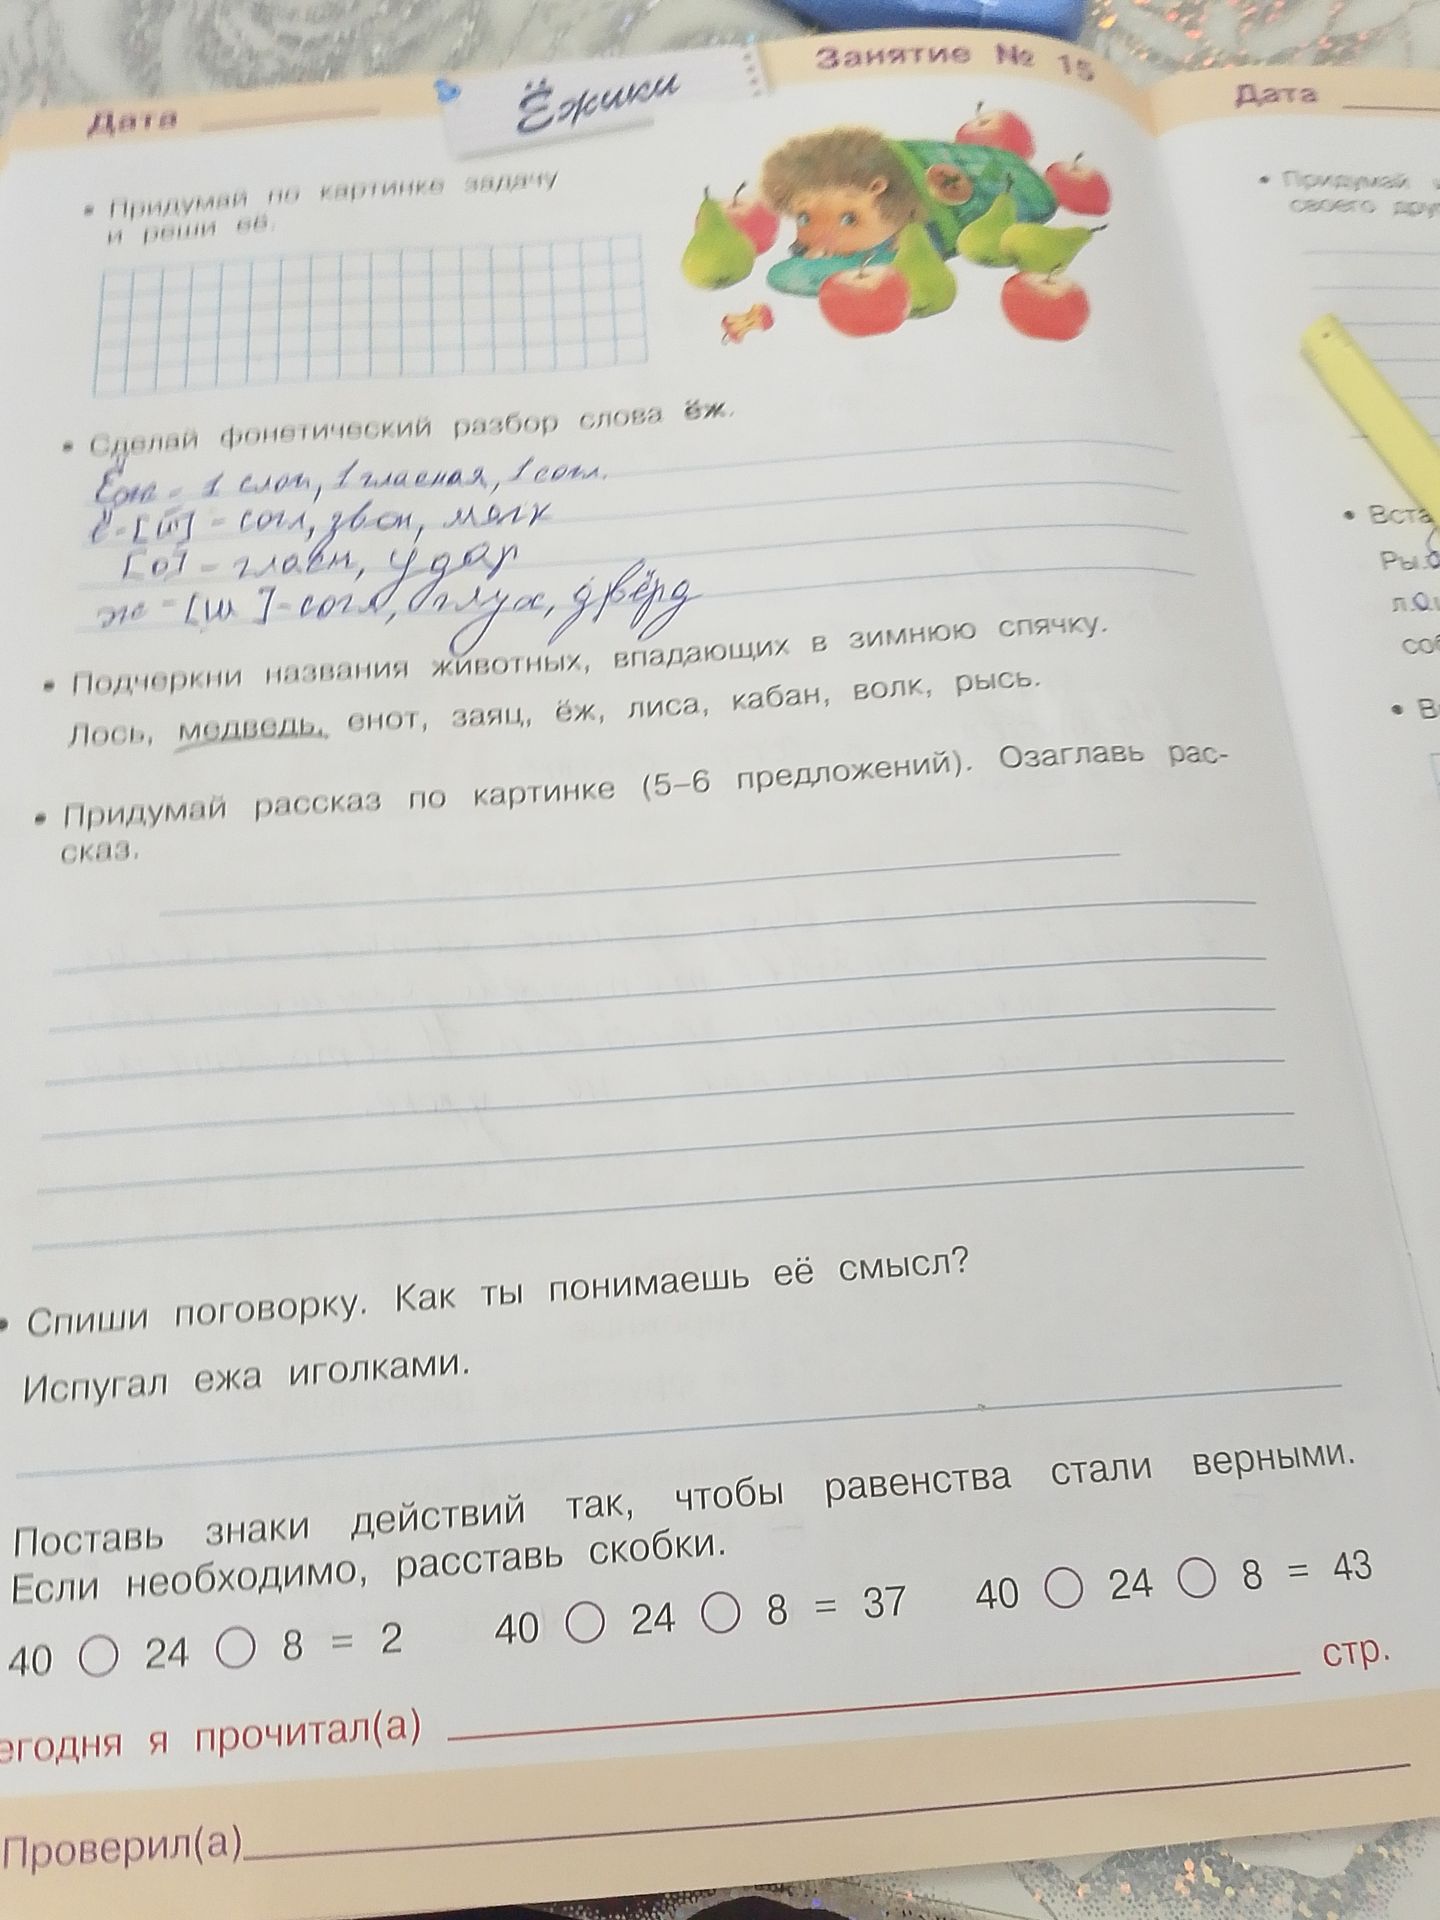 Дата
Ёжики
Занятие № 15
• Придумай по картинке задачу
и реши её.
• Сделай фонетический разбор слова ёж.
Ёж - 1 слог, 1 гласная, 1 согл.
ё - [й] - согл, звон, мягк
[о] - гласн, удар
ж - [ш] - согл, глух, твёрд
• Подчеркни названия животных, впадающих в зимнюю спячку.
Лось, медведь, енот, заяц, ёж, лиса, кабан, волк, рысь.
• Придумай рассказ по картинке (5–6 предложений). Озаглавь рас-
сказ.
• Спиши поговорку. Как ты понимаешь её смысл?
Испугал ежа иголками.
Поставь знаки действий так, чтобы равенства стали верными.
Если необходимо, расставь скобки.
40 ○ 24 ○ 8 = 2 40 ○ 24 ○ 8 = 37 40 ○ 24 ○ 8 = 43
егодня я прочитал(а) стр.
Проверил(а)
Дата
• Придумай
своего
• Вста
Ры.
соб
• В